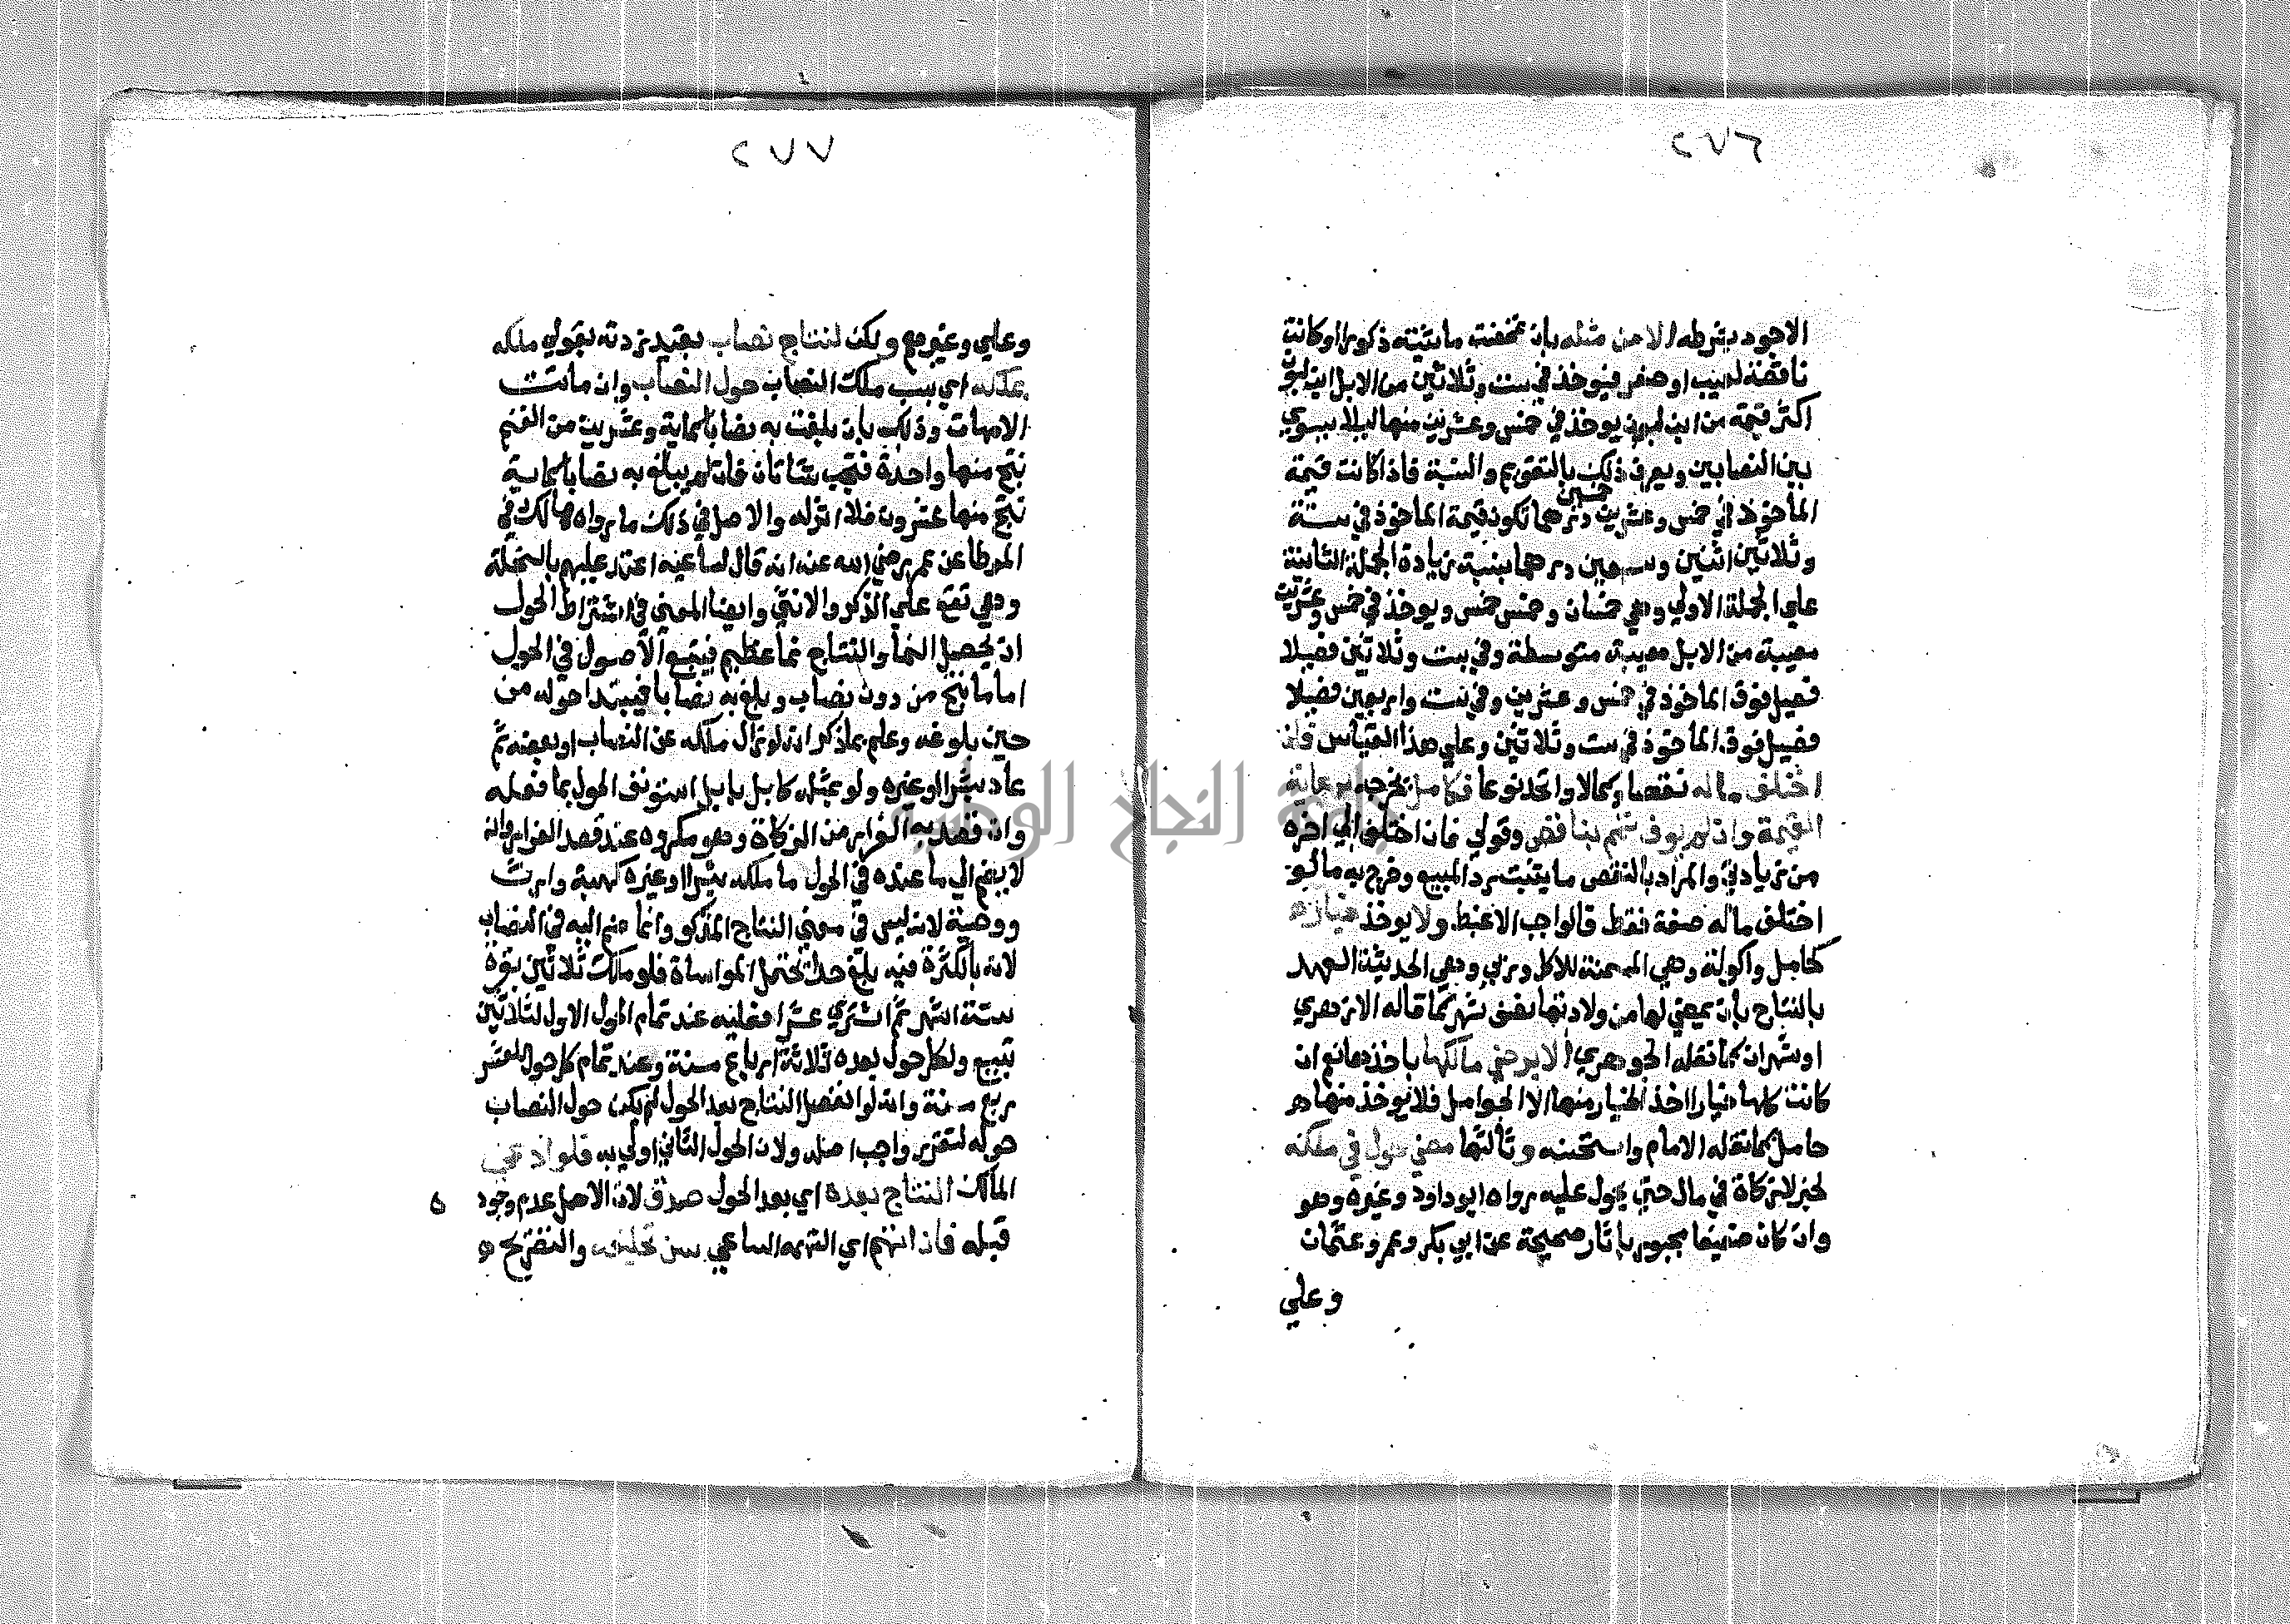 ٢٧٦
الاجود بشرطه الا من مثله بان تمخضت ماشيته ذكورا او كانت
ناقصة لعيب او صغر فيوخذ في ست وثلاثين من الابل ابن لبون
اكثر قيمة من ابن لبون يوخذ في خمس وعشرين منها ليلا يسوي
بين النصابين ويعرف ذلك بالتقويم والنسبة فاذا كانت قيمة
الماخوذ في خمس وعشرين خمسين درهما تكون قيمة الماخوذ في ستة
وثلاثين اثنين وسبعين درهما بنسبة زيادة الجملة الثانية
علي الجملة الاولي وهي خمسان وخمس خمس ويوخذ في خمس وعشرين
معيبة من الابل معيبة متوسطة وفي ست وثلاثين فصيلا
فصيل فوق الماخوذ في خمس وعشرين وفي ست واربعين فصيلا
فصيل فوق الماخوذ في ست وثلاثين وعلي هذا القياس فان
اختلف ماله نقصا وكمالا واتحد نوعا فكامل يخرجه برعاية
القيمة وان لم يوف تمم بناقص وقولي فان اختلف الي اخره
من زيادتي والمراد بالنقص ما يثبت رد المبيع وخرج به ما لو
اختلف ماله صفة فقط فالواجب الاغبط ولا يوخذ خيار
كحامل واكولة وهي المسمنة للاكل وربي وهي الحديثة العهد
بالنتاج بان يمضي لها من ولادتها نصف شهر كما قاله الازهري
او شهران كما نقله الجوهري الا برضي مالكها باخذها نعم ان
كانت كلها خيارا اخذ الخيار منها الا الحوامل فلا يوخذ منها
حامل كما نقله الامام واستحسنه وثالثها مضي حول في ملكه
لخبر لا زكاة في مال حتي يحول عليه رواه ابو داود وغيره وهو
وان كان ضعيفا مجبور باثار صحيحة عن ابي بكر وعمر وعثمان
وعلي
٢٧٧
وعلي وغيرهم ولكن لنتاج نصاب بقيد زدته بقولي ملكه
بملكه اي بسبب ملك النصاب حول النصاب وان ماتت
الامهات وذلك بان بلغت به نصابا كماية وعشرين من الغنم
نتج منها واحدة فتجب شاتان فان لم يبلغ به نصابا كماية
نتج منها عشرون فلا اثر له والاصل في ذلك ما رواه مالك في
الموطا عن عمر رضي الله عنه انه قال لساعيه اعتد عليهم بالسخلة
وهي تقع علي الذكر والانثي وايضا المعني في اشتراط الحول
ان يحصل النما والنتاج نما عظيم فيتبع الاصول في الحول
اما ما نتج من دون نصاب وبلغ به نصابا فيبتدا حوله من
حين بلوغه وعلم بما ذكر انه لو زال ملكه عن النصاب او بعضه ثم
عاد بشرا او غيره ولو بمثله كابل بابل استونف الحول بما فعله
وان قصد به الفرار من الزكاة وهو مكروه عند قصد الفرار وانه
لا يضم الي ما عنده في الحول ما ملكه بشرا او غيره كهبة وارث
ووصية لانه ليس في معني النتاج المذكور وانما ضم اليه في النصاب
لانه بالكثرة فيه بلغ حدا يحتمل المواساة فلو ملك ثلاثين بقرة
ستة اشهر ثم اشتري عشرا فعليه عند تمام الحول الاول لثلاثين
تبيع ولكل حول بعده ثلاثة ارباع مسنة وعند تمام كل حول للعشر
ربع مسنة وانه لو انفصل النتاج بعد الحول لم يكن حول النصاب
حوله لتقرر واجب اصله ولان الحول الثاني اولي به فلو ادعي
المالك النتاج بعده اي بعد الحول صدق لان الاصل عدم وجود
قبله فان اتهم اي اتهمه الساعي سن تحليفه والتصريح
جامعة النجاح الوطنية